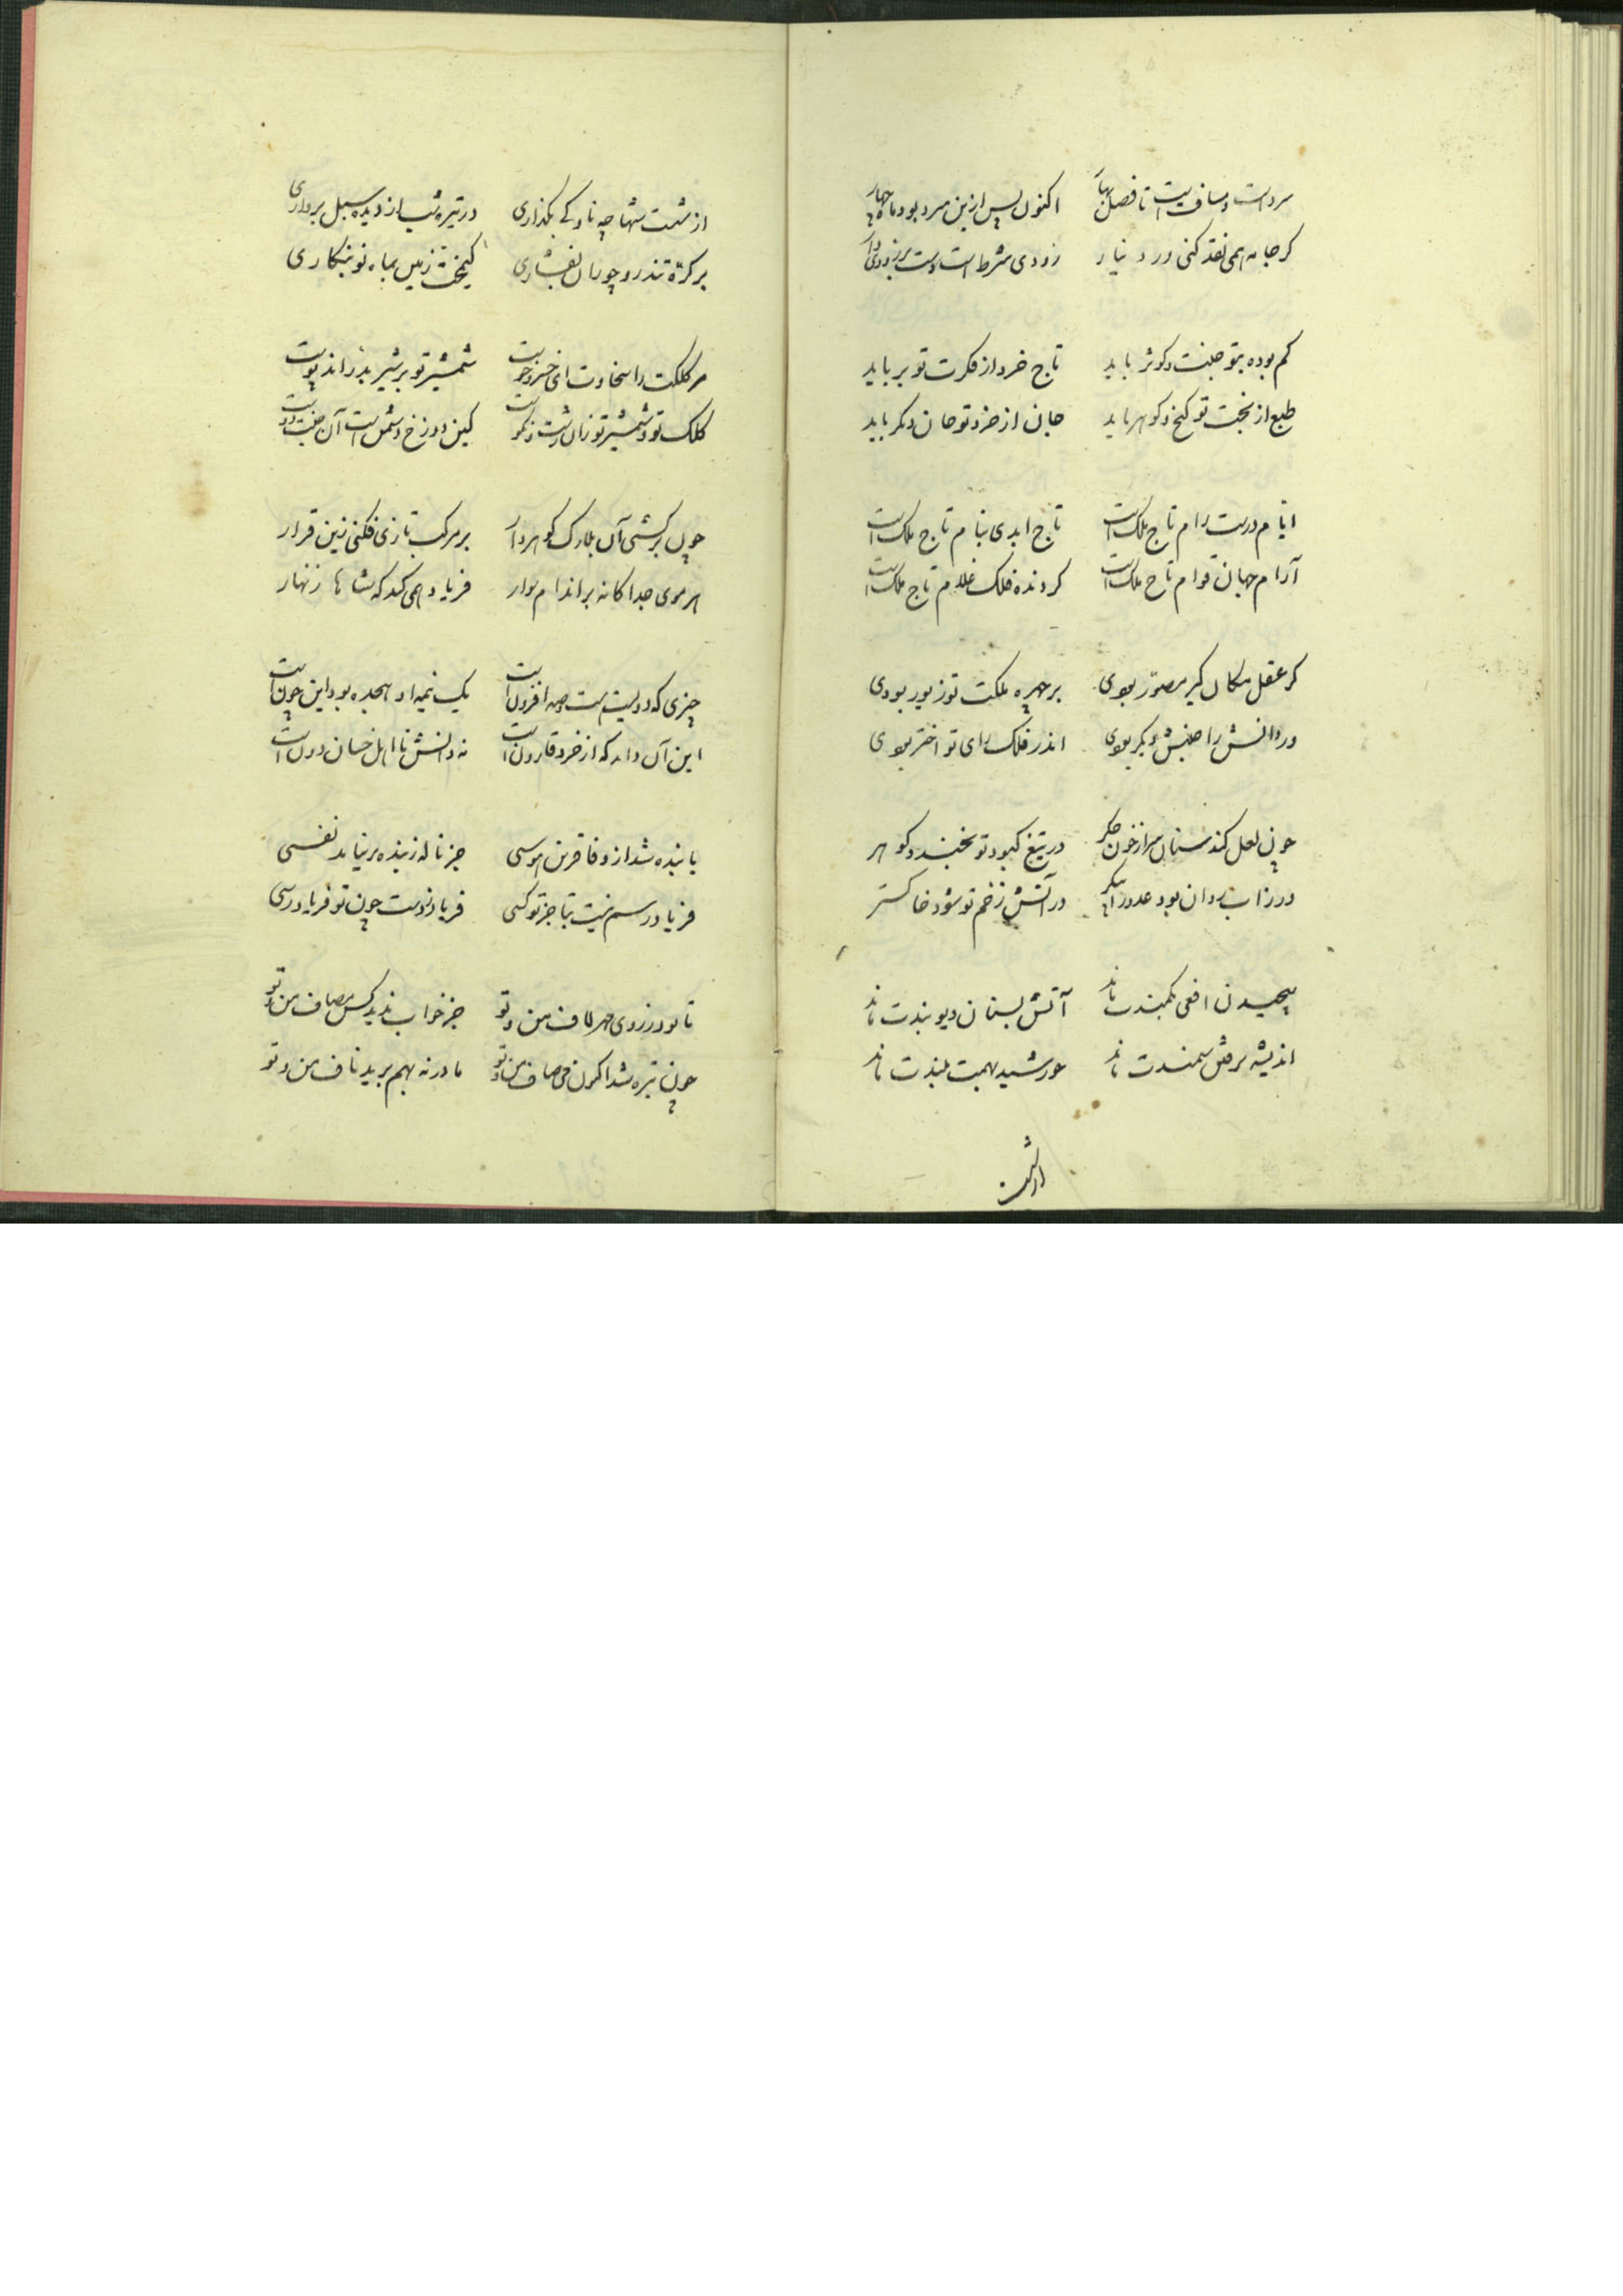 سردست و مسافتیست تا فصل بهار اکنون پس ازین سرد بود ما چهار
کر جامه همی نقد کنی ور دینار زودی شرط است دست بر زودی دار
کم بوده بتو جنت و کوثر باید تاج خرد از فکرت تو بر باید
طبع از نجت تو کنج و کوهر باید جان از خرد تو جان دکر باید
ایام درست رام تاج ملک است تاج ابدی بنام تاج ملک است
آرام جهان قوام تاج ملک است کردنده فلک غلام تاج ملک است
کر عقل مکان کیر مصور بودی بر چهره ملکت تو زیور بودی
ور دانش را جنبش و بکر بودی اندر فلک رای تو اختر بودی
چون لعل کند سنان سر از خون جکر در تیغ کبود تو بخندد کوهر
ور زاب روان بود عدو را پیکر در آتش زخم تو شود خاکستر
پیچیدن افعی بکمندت ماند آتش بسنان دیو بندت ماند
اندیشه برفتن سمندت ماند خورشید بهمت بلندت ماند
از شست
از شست شها چه ناوکے بکذاری در تیره شب از دیده سبل برداری
بر کرّه تند رو چو ران بفشاری کیمخت زمین بماه نو بنکاری
مر کلکت را سخاوت ای خسرو خوست شمشیر تو بر شیر بدراند پوست
کلک تو و شمشیر تو زان زشت و نکوست کین دوزخ دشمن است آن جنت دوست
چون برکشی آن بلارک کوهردار بر مرکب تازی فکنی زین قرار
هر موی جداکانه بر اندام سوار فریاد همی کند که شاها زنهار
چیزی که دویست بیست و صد افزون است یک نیمه او هجده بود این چون است
این آن داند که از خرد قارون است نه دانش نااهل خسان دون است
با بنده شد از وفا قرین هوسی جز ناله ز بنده بر نیاید نفسی
فریادرسم نیست بتا جز تو کسی فریاد ز دست چون تو فریادرسی
تا بود ز روی مهر لاف من و تو جز خواب ندید کس مصاف من و تو
چون تیره شد اکنون می صاف من و تو مادر نه بهم برید ناف من و تو